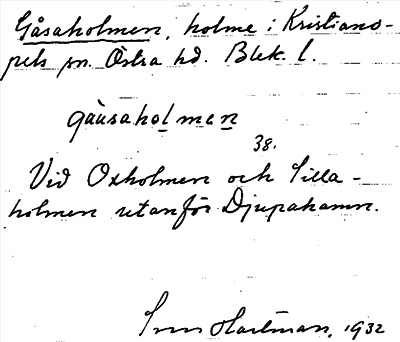 Gåsaholmen, holme i Kristiano-
pels sn. Östra hd. Blek. l.
gàusaholmen
38.
Vid Oxholmen och Silla-
holmen utanför Djupahamn.
Sven Hartman, 1932